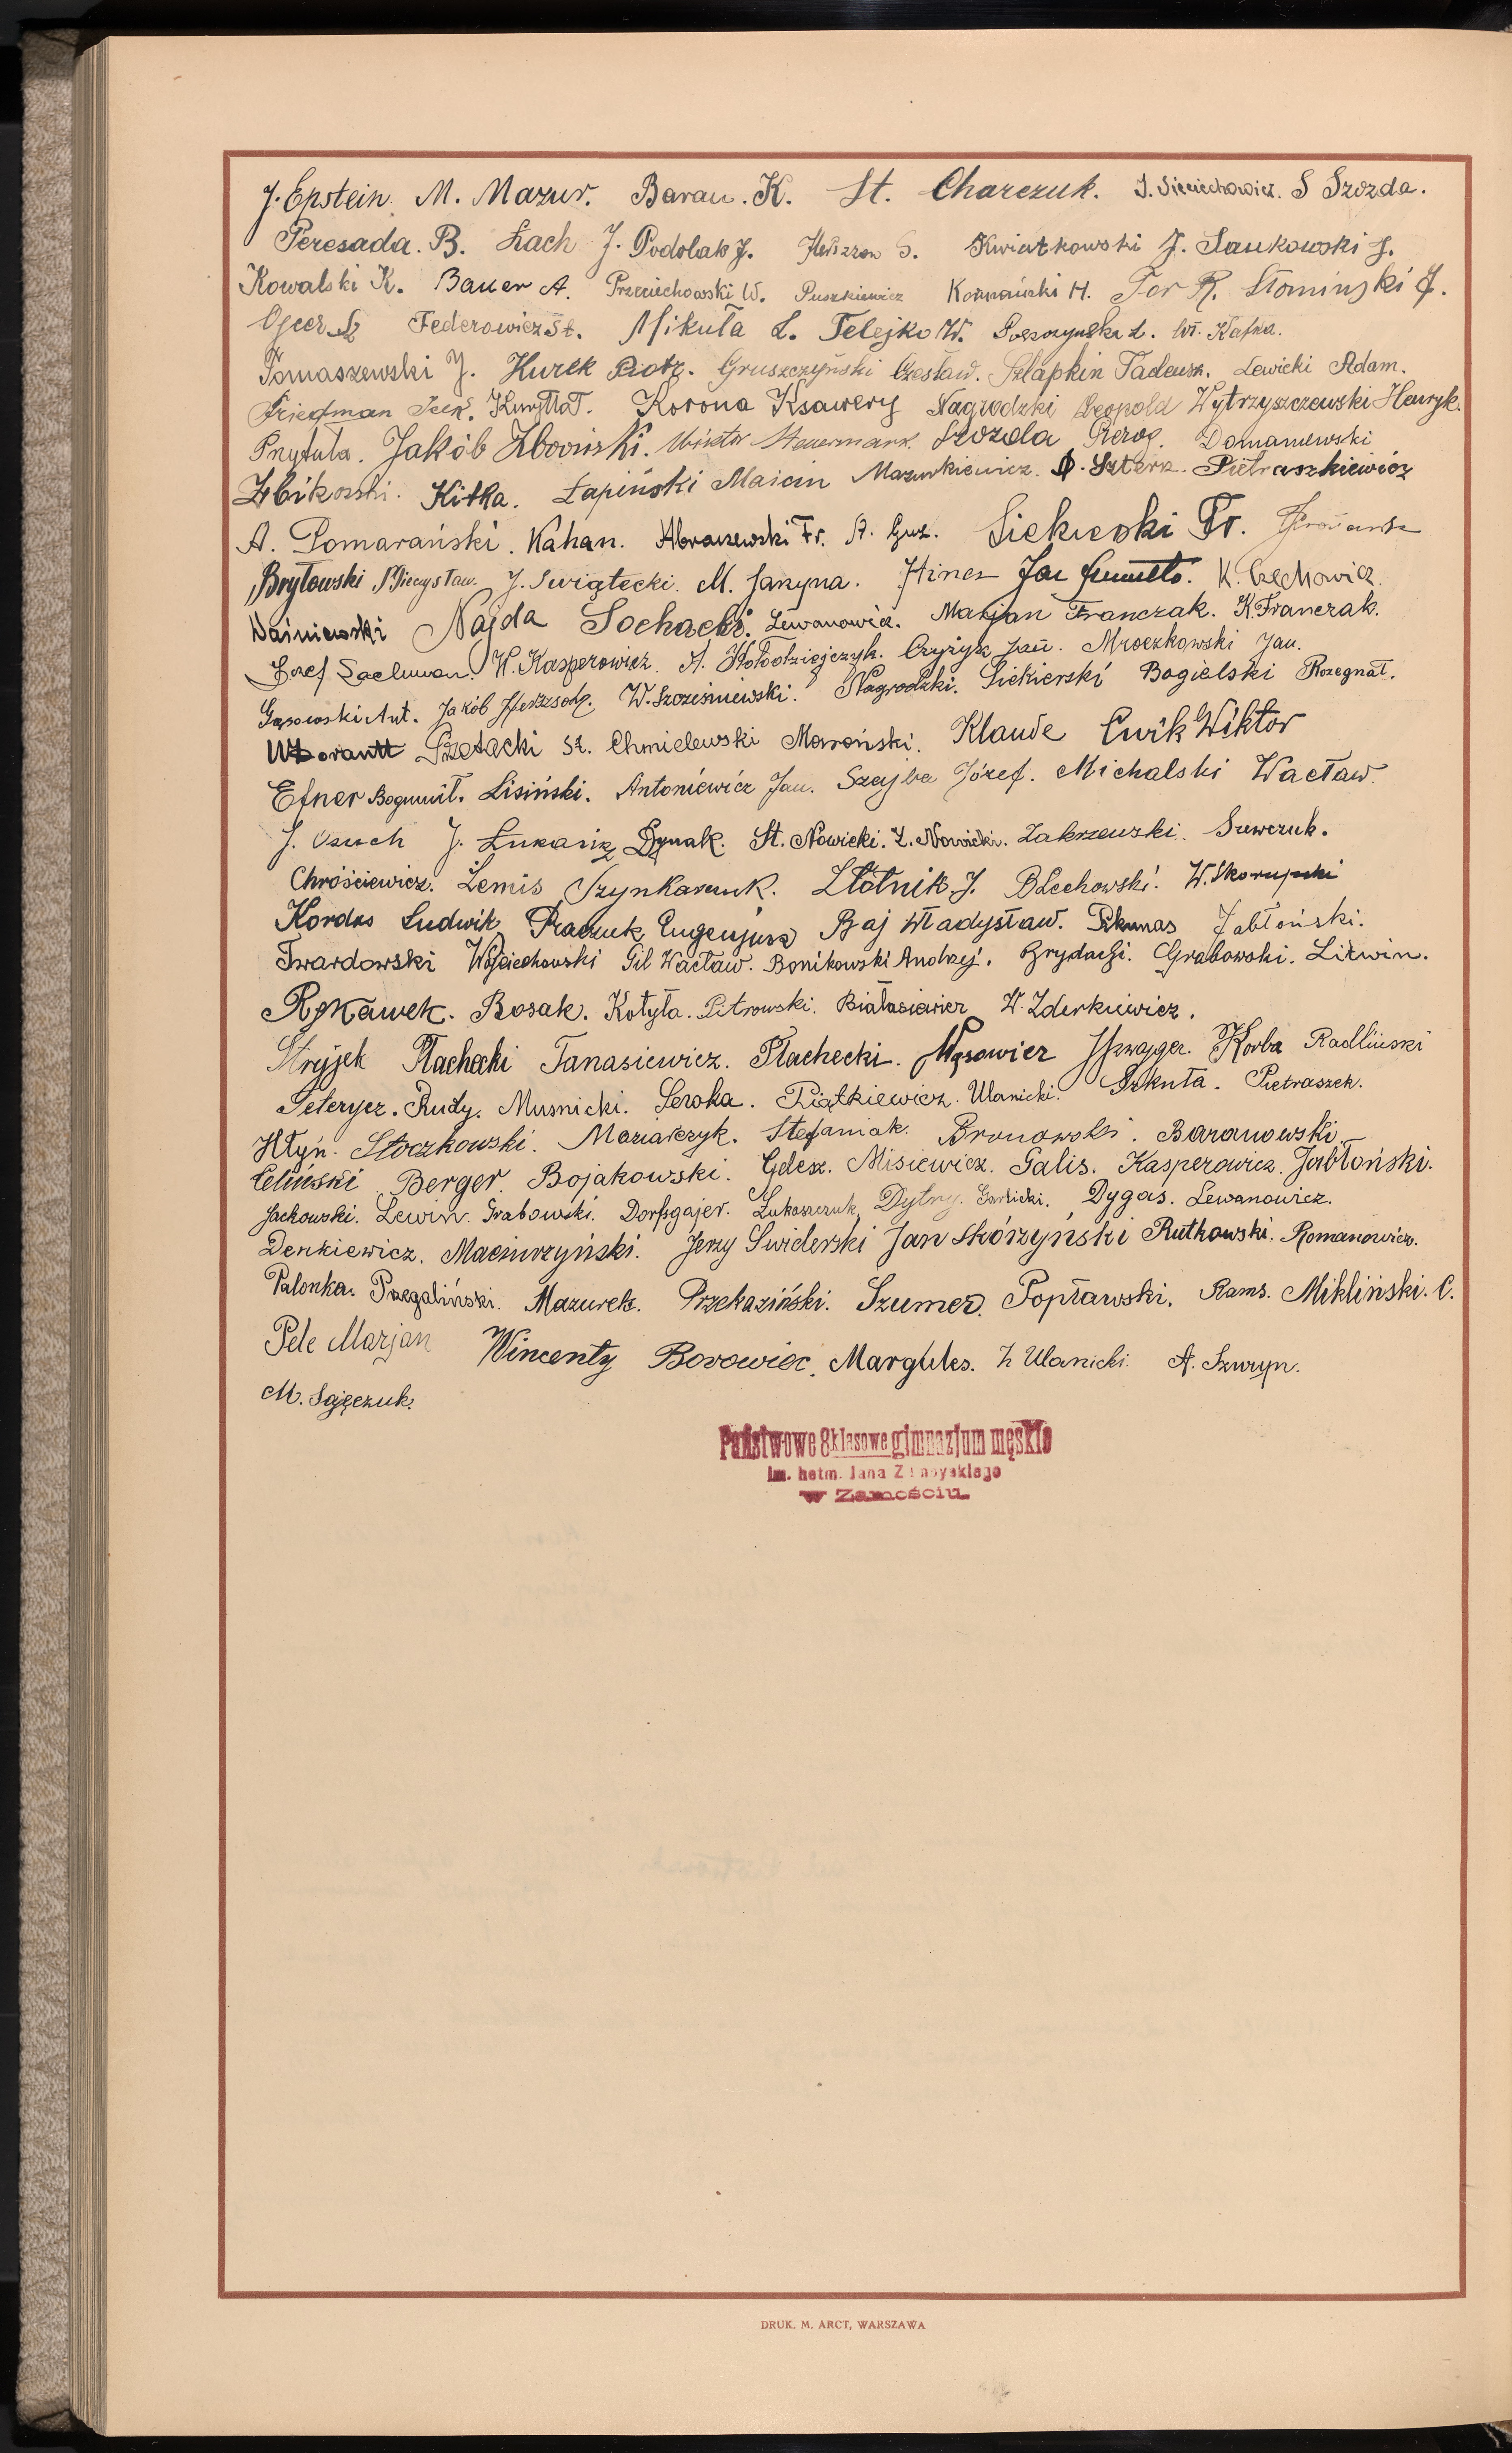 J. Epstein. M. Mazur. Baran. K. St. Charczuk. J. Sieciechowicz. S Szozda.
Peresada. B. Łach J. Podolak J. Herszzon S. Kwiatkowski J. Jankowski J.
Kowalski K. Bauer A. Przeciechowski W. Puszkiewicz Koźmiński H. Tor R. Słomiński J.
Federowicz St. Mikuła L. Telejko W. Wł. Kafka.
Tomaszewski J. Kurek Piotr. Gruszczyński Czesław. Szlapkin Tadeusz. Lewicki Adam.
Friedman Kuryłło T. Korona Ksawery Nagrodzki Leopold Wytrzyszczewski Henryk.
Przytuła. Jakób Zbooiński. Wiktor Steuermark. Szozda Pieróg. Domaniewski
Żbikowski. Kitka. Łapiński Marcin Mazurkiewicz. Szterk. Pietraszkiewicz
A. Pomarański. Kahan. Abraszewski Fr. A. Guz. Siekierski Fr.
Bryłowski Miecysław. J. Świątecki. M. Janyna. Hines Jan K. Czechowicz.
Waśniewski Najda Sochacki. Lewanowicz. Marjan Franczak. K. Franczak.
Józef W. Kasperowicz. A. Kołodziejczyk. Czyżyk Jan. Mroczkowski Jan.
Gąsowski Ant. Jakób W. Szcześniewski. Nagrodzki. Siekierski Bogielski Rozegnał.
St. Chmielewski Maroński. Klaude Ćwik Wiktor
Efner Bogumił. Lisiński. Antoniewicz Jan. Szajba Józef. Michalski Wacław.
J. Osuch J. Łukasik Dynak. St. Nowicki. Z. Nowicki. Zakrzewski. Szewczuk.
Chróściewicz. Lemis Szynkaruk. Złotnik J. Blechowski. W. Skorupski
Kordos Ludwik Praczuk Eugenjusz Baj Władysław. Pikunas Jabłoński.
Twardowski Wojciechowski Gil Wacław. Bonikowski Andrzej. Brydacki. Grabowski. Litwin.
Rękawek. Bosak. Kotyła. Pitrowski. Białasiewicz W. Zderkiewicz.
Stryjek Płachecki Tanasiewicz. Płachecki. Wąsowicz Szwajger. Korba Radliński
Seterycz. Rudy. Musnicki. Seroka. Piątkiewicz. Ulanicki. Szkuta. Pietraszek.
Hłyń. Stoczkowski. Maziarczyk. Stefaniak. Bronowski. Baranowski.
Celiński Berger Bojakowski. Gelez. Misiewicz. Galis. Kasperowicz. Jabłoński.
Jackowski. Lewin. Grabowski. Dorfsgajer. Łukaszczuk. Dytry. Garlicki. Dygas. Lewanowicz.
Denkiewicz. Maciurzyński. Jerzy Świderski Jan Skórzyński Rutkowski. Romanowicz.
Palonka. Przegaliński. Mazurek. Przekaziński. Szumer. Popławski. Rams. Mikliński. C.
Pele Marjan Wincenty Borowiec. Margules. Z Ulanicki. A. Szwyn.
M. Sajęczuk.
Państwowe 8 klasowe gimnazjum męskie
im. hetm. Jana Zamoyskiego
w Zamościu
DRUK. M. ARCT, WARSZAWA